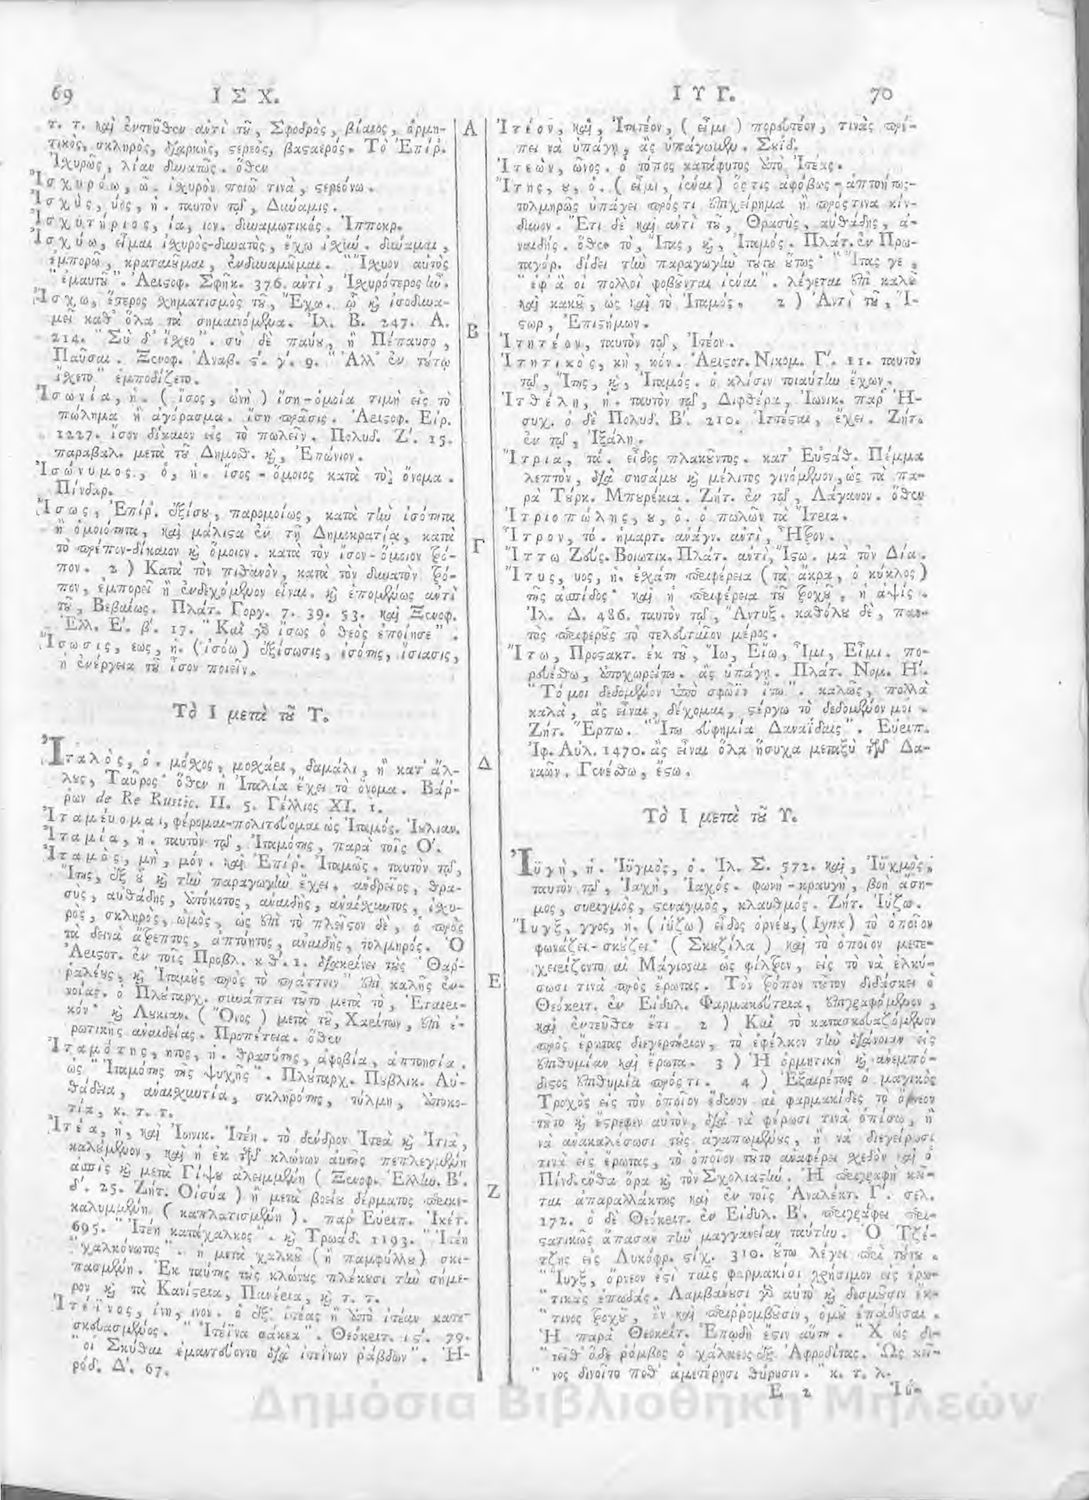 69 Ι Σ Χ.
τ. τ. καὶ ἐντεῦθεν αὐτὶ τοῦ, Σφοδρὸς, βίαιος, ὁρμη-
τικὸς, σκληρὸς, διαρκὴς, στερεὸς, βασαερός. Τὸ Ἐπίρ.
Ἰχυρῶς, λίαν δυνατῶς. ὅθεν
Ἰσχυρόω, ῶ. ἰχυρὸν ποιῶ τινὰ, στερεόνω.
Ἰσχὺς, ύος, ἡ. ταυτὸν τῷ, Δύναμις.
Ἰσχυτήριος, ία, ιον. δυναμωτικός. Ἱπποκρ.
Ἰσχύω, εἶμαι ἰχυρὸς-δυνατὸς, ἔχω ἰχύν. δύναμαι,
ἐμπορῶ, κραταιοῦμαι, ἐνδυναμοῦμαι. "Ἴχυον αὐτὸς
ἐμαυτοῦ". Ἀριστοφ. Σφηκ. 376. αὐτὶ, Ἰχυρότερος ἦν.
Ἴσχω, ἕτερος χηματισμὸς τοῦ, Ἔχω. ᾧ καὶ ἰσοδυνα-
μεῖ καθ' ὅλα τὰ σημαινόμενα. Ἰλ. Β. 247. Α.
214. "Σὺ δ' ἴχεο". σὺ δὲ παύου, ἢ Πέπαυσο,
Παῦσαι. Ξενοφ. Ἀναβ. ϛ'. γ'. 9. "Ἀλλ' ἐν τούτῳ
ἴχετο" ἐμποδίζετο.
Ἰσωνία, ἡ. (ἴσος, ὠνὴ) ἴση-ὁμοία τιμὴ εἰς τὸ
πώλημα ἢ ἀγόρασμα. ἴση πράσις. Ἀριστοφ. Εἰρ.
1227. ἴσον δίκαιον εἰς τὸ πωλεῖν. Πολυδ. Ζ'. 15.
παραβαλ. μετὰ τοῦ Δημοσθ. καὶ, Ἐπώνιον.
Ἰσώνυμος, ὁ, ἡ. ἴσος-ὅμοιος κατὰ τὸ ὄνομα.
Πίνδαρ.
Ἴσως, Ἐπίρ. ἐξίσου, παρομοίως, κατὰ τὴν ἰσότητα
ἢ ὁμοιότητα, καὶ μάλιστα ἐν τῇ Δημοκρατίᾳ, κατὰ
τὸ πρέπον-δίκαιον καὶ ὅμοιον. κατὰ τὸν ἴσον-ὅμοιον τρό-
πον. 2) Κατὰ τὸν πιθανὸν, κατὰ τὸν δυνατὸν τρό-
πον, ἐμπορεῖ ἢ ἐνδεχόμενον εἶναι. καὶ ἑπομένως αὐτὶ
τοῦ, Βεβαίως. Πλάτ. Γοργ. 7. 39. 53. καὶ Ξενοφ.
Ἑλλ. Ε'. β'. 17. "Καὶ γὰρ ἴσως ὁ θεὸς ἐποίησε".
Ἴσωσις, εως, ἡ. (ἰσόω) ἐξίσωσις, ἰσότης, ἰσίασις,
ἡ ἐνέργεια τοῦ ἴσον ποιεῖν.
Τὸ Ι μετὰ τοῦ Τ.
Ἰταλὸς, ὁ. μόχος, μοχάρι, δαμάλι, ἢ κατ' ἄλ-
λους, Ταῦρος· ὅθεν ἡ Ἰταλία ἔχει τὸ ὄνομα. Βάρ-
ρων de Re Rustic. II. 5. Γέλλιος XI. 1.
Ἰταμεύομαι, φέρομαι-πολιτεύομαι ὡς Ἰταμός. Ἰυλιαν.
Ἰταμία, ἡ. ταυτὸν τῷ, Ἰταμότης, παρὰ τοῖς Ο'.
Ἰταμὸς, μὴ, μόν. καὶ Ἐπίρ. Ἰταμῶς. ταυτὸν τῷ,
Ἴτης, ἐξ οὗ καὶ τὴν παραγωγὴν ἔχει. ἀνδρεῖος, θρα-
σὺς, αὐθάδης, ἀπότομος, ἀναιδὴς, ἀναίχυντος, ἰχυ-
ρὸς, σκληρὸς, ὠμὸς, ὡς ἐπὶ τὸ πλεῖστον δὲ, ὁ πρὸς
τὰ δεινὰ ἄτρεπτος, ἀπτόητος, ἀναιδὴς, τολμηρός. Ὁ
Ἀριστοτ. ἐν τοῖς Προβλ. κθ'. 1. διακρίνει τὰς "Θαρ-
ραλέους, καὶ Ἰταμοὺς πρὸς τὸ πράττειν" ἐπὶ καλῆς ἐν-
νοίας. ὁ Πλούταρχ. συνάπτει τοῦτο μετὰ τὸ, Ἑταιρι-
κόν· καὶ Λουκιαν. (Ὄνος) μετὰ τοῦ, Χαρίτων, ἐπὶ ἐ-
ρωτικῆς ἀναιδείας. Προπέτεια. ὅθεν
Ἰταμότης, ητος, ἡ. θρασύτης, ἀφοβία, ἀπτοησία.
ὡς "Ἰταμότης τῆς ψυχῆς". Πλουταρχ. Πυβλικ. Αὐ-
θάδεια, ἀναιχυντία, σκληρότης, τόλμη,
τία, κ. τ. τ.
Ἰτέα, ἡ, καὶ Ἰωνικ. Ἰτέη. τὸ δένδρον Ἰτεὰ καὶ Ἰτιὰ,
καλούμενον, καὶ ἡ ἐκ τῶν κλώνων αὐτῆς πεπλεγμένη
ἀσπὶς καὶ μετὰ Γύψου ἀλειμμένη (Ξενοφ. Ἑλλην. Β'.
δ'. 25. Ζήτ. Οἰσύα) ἢ μετὰ βοείου δέρματος περικε-
καλυμμένη. (καπλατισμένη). παρ' Εὐριπ. Ἱκέτ.
695. "Ἰτέη κατάχαλκος". καὶ Τρωάδ. 1193. "Ἰτέη
χαλκόνωτος". ἡ μετὰ χαλκοῦ (ἢ παμφύλλου) σκε-
πασμένη. Ἐκ ταύτης τοὺς κλώνους πλέκουσι τὴν σήμε-
ρον καὶ τὰ Κανίστρια, Πανέρια, καὶ τ. τ.
Ἰτέϊνος, ίνη, ινον. ὁ ἐξ ἰτέας ἢ ἀπὸ ἰτέαν κατε-
σκευασμένος. "Ἰτέϊνα σάκεα". Θεόκριτ. ιϛ'. 79.
"οἱ Σκύθαι ἐμαντεύοντο διὰ ἰτεΐνων ῥάβδων". Ἡ-
ρόδ. Δ'. 67.
Α
Β
Γ
Δ
Ε
Ζ
Ι Υ Γ. 70
Ἰτέον, καὶ, Ἰτητέον, (εἶμι) πορευτέον, τινὰς πρέ-
πει νὰ ὑπάγῃ, ἂς ὑπάγωμεν. Σουΐδ.
Ἰτεὼν, ῶνος. ὁ τόπος κατάφυτος ἀπὸ Ἰτέας.
Ἴτης, ου, ὁ. (εἶμι, ἰέναι) ὅςτις ἀφόβως-ἀπτοήτως-
τολμηρῶς ὑπάγει πρός τι ἐπιχείρημα ἢ πρός τινα κίν-
δυνον. Ἔτι δὲ καὶ αὐτὶ τοῦ, Θρασὺς, αὐθάδης, ἀ-
ναιδής. ὅθεν τὸ, Ἴτας, καὶ, Ἰταμός. Πλάτ. ἐν Πρω-
ταγόρ. δίδει τὴν παραγωγὴν τούτου οὕτως· "Ἴτας γε,
ἐφ' ἃ οἱ πολλοὶ φοβοῦνται ἰέναι". λέγεται ἐπὶ καλοῦ
καὶ κακοῦ, ὡς καὶ τὸ Ἰταμός. 2) Ἀντὶ τοῦ, Ἴ-
στωρ, Ἐπιστήμων.
Ἰτητέον, ταυτὸν τῷ, Ἰτέον.
Ἰτητικὸς, κὴ, κόν. Ἀριστοτ. Νικομ. Γ'. 11. ταυτὸν
τῷ, Ἴτης, καὶ, Ἰταμός. ὁ κλίσιν τοιαύτην ἔχων.
Ἰτθέλη, ἡ. ταυτὸν τῷ, Διφθέρα, Ἰωνικ. παρ' Ἡ-
συχ. ὁ δὲ Πολυδ. Β'. 210. ἔχει. Ζήτ.
ἐν τῷ, Ἰξάλη.
Ἴτρια, τά. εἶδος πλακοῦντος. κατ' Εὐστάθ. Πέμμα
λεπτὸν, διὰ σησάμου καὶ μέλιτος γινόμενον, ὡς τὰ πα-
ρὰ Τούρκ. Μπουρέκια. Ζήτ. ἐν τῷ, Λάγανον. ὅθεν
Ἰτριοπώλης, ου, ὁ. ὁ πωλῶν τὰ Ἴτρια.
Ἴτρον, τό. ἡμαρτ. ἀνάγν. αὐτὶ, Ἦτρον.
Ἴττω Ζεύς. Βοιωτικ. Πλάτ. αὐτὶ, Ἴστω. μὰ τὸν Δία.
Ἴτυς, υος, ἡ. ἐχάτη περιφέρεια (τὰ ἄκρα, ὁ κύκλος)
τῆς ἀσπίδος· καὶ ἡ περιφέρεια τοῦ τροχοῦ, ἡ ἁψίς.
Ἰλ. Δ. 486. ταυτὸν τῷ, Ἄντυξ. καθόλου δὲ, παν-
τὸς περιφεροῦς τὸ τελευταῖον μέρος.
Ἴτω, Προστακτ. ἐκ τοῦ, Ἴω, Εἴω, Ἶμι, Εἶμι. πο-
ρευέσθω, ὑποχωρείτω. ἂς ὑπάγῃ. Πλάτ. Νομ. Η'.
"Τό μοι δεδομένον ὑπὸ σφῶϊν ἴτω". καλῶς, πολλὰ
καλὰ, ἂς εἶναι, δέχομαι, στέργω τὸ δεδομένον μοι.
Ζήτ. Ἔρπω. "Ἴτω εὐφημία Δαναΐδαις". Εὐριπ.
Ἰφ. Αὐλ. 1470. ἂς εἶναι ὅλα ἥσυχα μεταξὺ τῶν Δα-
ναῶν. Γενέσθω, ἔστω.
Τὸ Ι μετὰ τοῦ Υ.
Ἰϋγὴ, ἡ. Ἰϋγμὸς, ὁ. Ἰλ. Σ. 572. καὶ, Ἰϋχμὸς,
ταυτὸν τῷ, Ἰαχὴ, Ἰαχός. φωνὴ-κραυγὴ, βοὴ ἄση-
μος, συριγμὸς, στεναγμὸς, κλαυθμός. Ζήτ. Ἰύζω.
Ἴυγξ, γγος, ἡ. (ἰύζω) εἶδος ὀρνέου, (Iynx) τὸ ὁποῖον
φωνάζει-σκούζει· (Σκουζίλα) καὶ τὸ ὁποῖον μετε-
χειρίζοντο αἱ Μάγισσαι ὡς φίλτρον, εἰς τὸ νὰ ἑλκύ-
σωσί τινα πρὸς ἔρωτας. Τὸν τρόπον τοῦτον διδάσκει ὁ
Θεόκριτ. ἐν Εἰδυλ. Φαρμακεύτρια, ἐπιγραφομένῳ,
καὶ ἐντεῦθεν ἔτι 2) Καὶ τὸ κατασκευαζόμενον
πρὸς ἔρωτας διεγερτήριον, τὸ ἐφέλκον τὴν διάνοιαν εἰς
ἐπιθυμίαν καὶ ἔρωτα. 3) Ἡ ὁρμητικὴ καὶ ἀνεμπό-
διστος ἐπιθυμία πρός τι. 4) Ἐξαιρέτως ὁ μαγικὸς
Τροχὸς εἰς τὸν ὁποῖον ἔδενον αἱ φαρμακίδες τὸ ὄρνεον
τοῦτο καὶ ἔστρεφον αὐτὸν, διὰ νὰ φέρωσί τινὰ ὀπίσω, ἢ
νὰ ἀνακαλέσωσι τοὺς ἀγαπωμένους, ἢ νὰ διεγείρωσί
τινὰ εἰς ἔρωτας, τὸ ὁποῖον τοῦτο ἀναφέρει χεδὸν καὶ ὁ
Πίνδ. ἔνθα ὅρα καὶ τὸν Σχολιαστήν. Ἡ περιγραφὴ κεῖ-
ται ἀπαραλλάκτως καὶ ἐν τοῖς Ἀναλέκτ. Γ'. σελ.
172. ὁ δὲ Θεόκριτ. ἐν Εἰδυλ. Β'. περιγράφει περι-
στατικῶς ἅπασαν τὴν μαγγανείαν ταύτην. Ὁ Τζέ-
τζης εἰς Λυκόφρ. στίχ. 310. οὕτω λέγει περὶ τούτου.
"Ἴυγξ, ὄρνεον ἐστὶ ταῖς φαρμακίσι χρήσιμον εἰς ἐρω-
τικὰς ἐπῳδάς. Λαμβάνουσι γὰρ αὐτὸ καὶ δεσμοῦσιν ἔκ
τινος τροχοῦ, ὃν καὶ περιρρομβοῦσιν, ὁμοῦ ἐπᾴδουσαι.
Ἡ παρὰ Θεόκριτ. Ἐπῳδὴ ἐστιν αὕτη. "Χ' ὡς δι-
νεῖθ' ὅδε ῥόμβος ὁ χάλκεος ἐξ Ἀφροδίτας. Ὣς κεῖ-
νος δινοῖτο ποθ' ἁμετέρῃσι θύρῃσιν." κ. τ. λ.
Ε 2 Ἰΰ-
Δημόσια Βιβλιοθήκη Μηλεών